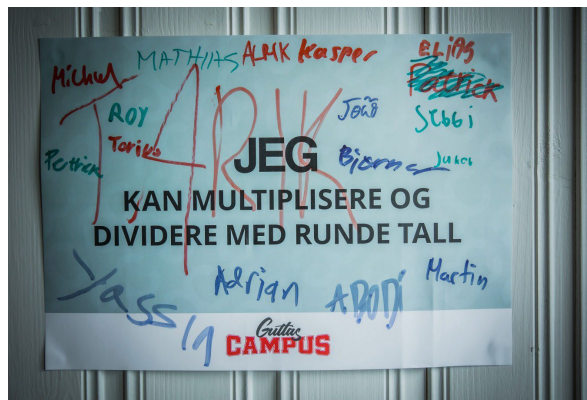 MATHIAS ALRIK Kasper ELIAS
Michael
Patrick
TARIK
ROY João Sebbi
Petrick
JEG
KAN MULTIPLISERE OG
DIVIDERE MED RUNDE TALL
Yassin Adrian ABODI Martin
Guttas
CAMPUS